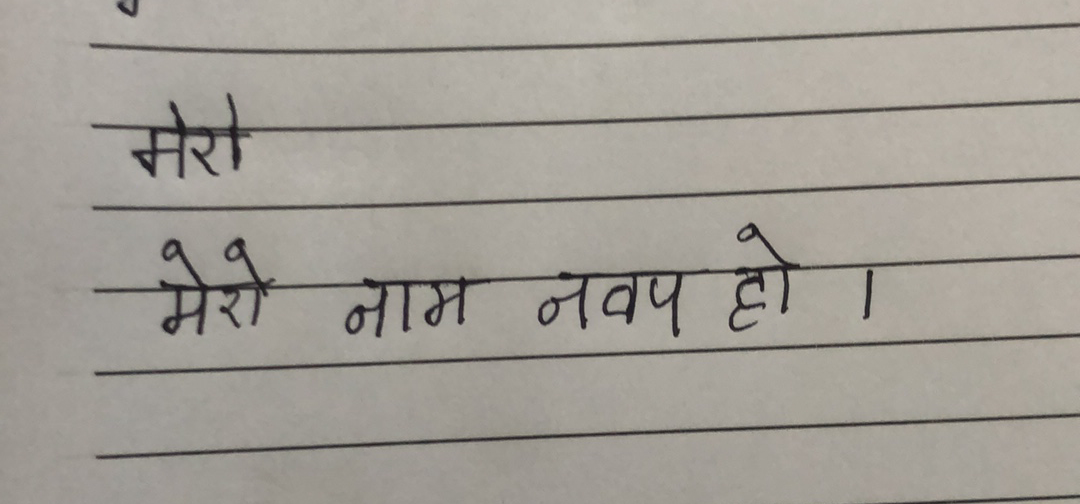 मेरो
मेरो नाम नवप हो ।